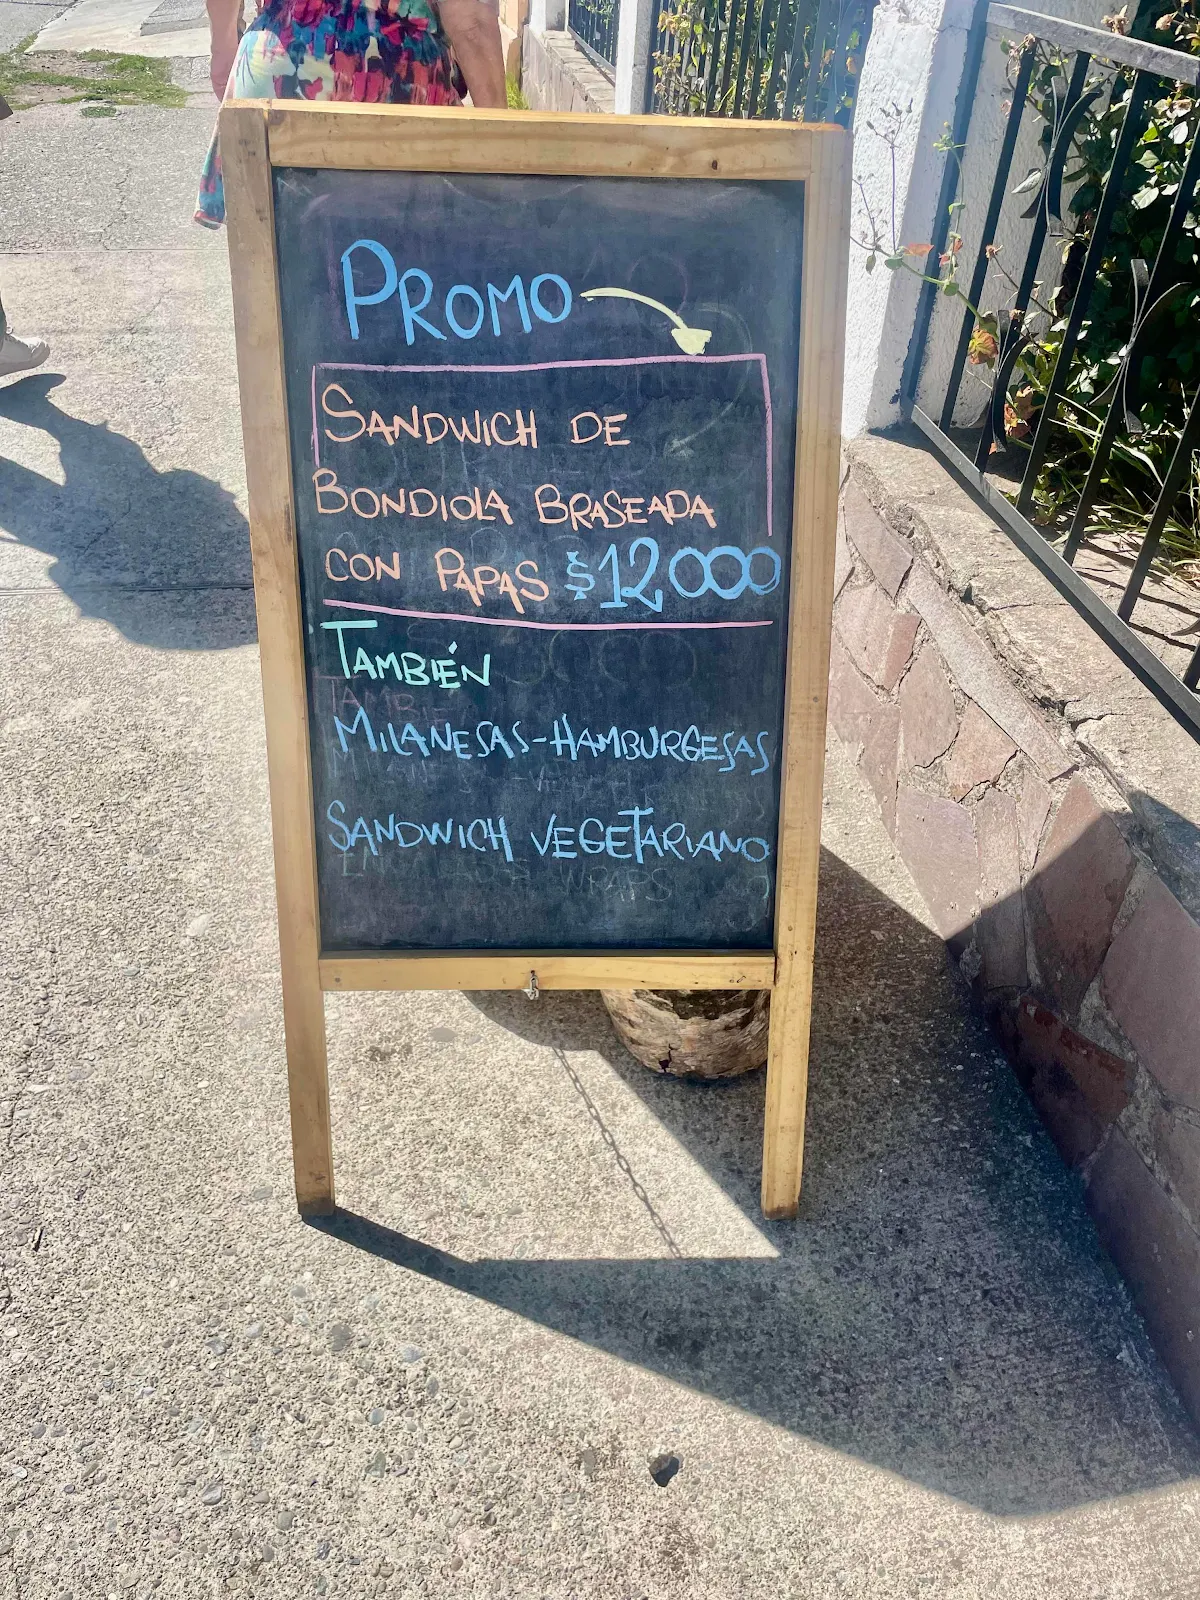 PROMO
SANDWICH DE
BONDIOLA BRASEADA
CON PAPAS $12000
TAMBIÉN
MILANESAS-HAMBURGESAS
SANDWICH VEGETARIANO
WRAPS